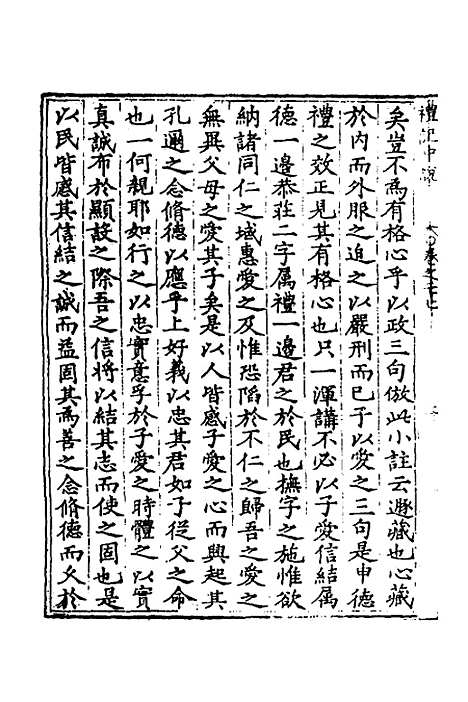 禮記中說
卷之二十七
矣豈不爲有格心乎以政三句倣此小註云遯藏也心藏
於内而外服之迫之以嚴刑而已子以愛之三句是申德
禮之效正見其有格心也只一渾講不必以子愛信結屬
德一邊恭莊二字属禮一邊君之於民也撫字之施惟欲
納諸同仁之域惠愛之及惟恐陷於不仁之歸吾之愛之
無異父母之愛其子矣是以人皆感子愛之心而興起其
孔邇之念脩德以應乎上好義以忠其君如子從父之命
也一何親耶如行之以忠實意孚於子愛之時體之以實
真誠布於顯設之際吾之信將以結其志而使之固也是
以民皆感其信結之誠而益固其爲善之念脩德而久於